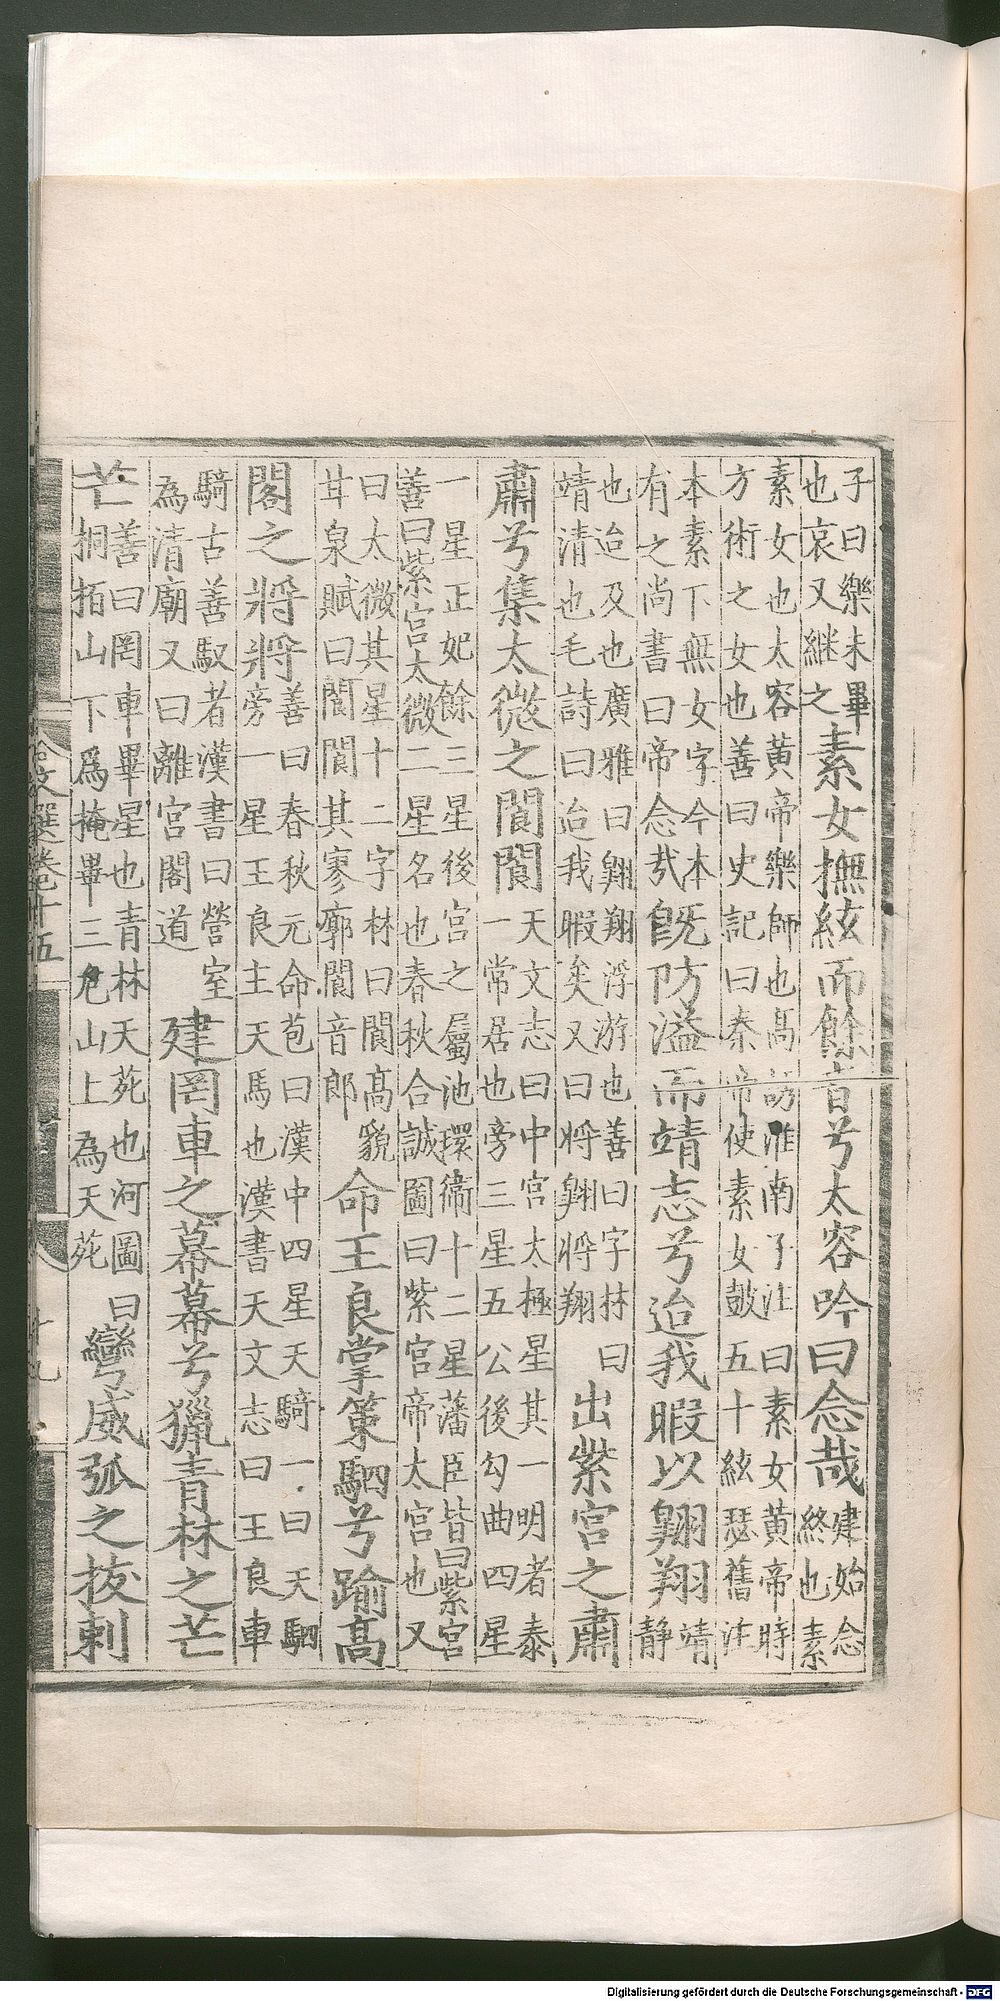 子曰樂未畢
也哀又繼之
素女撫絃而餘音兮太容吟曰念哉
建始念
終也素
素女也太容黃帝樂師也高誘淮南子注曰素女黃帝時
方術之女也善曰史記曰秦帝使素女鼓五十絃瑟舊注
本素下無女字今本
有之尚書曰帝念哉
既防溢而靖志兮迨我暇以翱翔
靖
靜
也迨及也廣雅曰翱翔浮游也善曰字林曰
靖清也毛詩曰迨我暇矣又曰將翱將翔
出紫宮之肅
肅兮集太微之閬閬
天文志曰中宮太極星其一明者泰
一常居也旁三星五公後勾曲四星
一星正妃餘三星後宮之屬池環衞十二星藩臣皆曰紫宮
善曰紫宮太微二星名也春秋合誠圖曰紫宮帝太宮也又
曰大微其星十二字林曰閬高貌
甘泉賦曰閬閬其寥廓閬音郎
命王良掌策駟兮踰高
閣之將將
善曰春秋元命苞曰漢中四星天騎一曰天駟
旁一星王良主天馬也漢書天文志曰王良車
騎古善馭者漢書曰營室
為清廟又曰離宮閣道
建罔車之幕幕兮獵青林之芒
芒
善曰罔車畢星也青林天苑也河圖曰
桐栢山下爲掩畢三危山上為天苑
彎威弧之拔剌
文選卷十五
十九
Digitalisierung gefördert durch die Deutsche Forschungsgemeinschaft - DFG